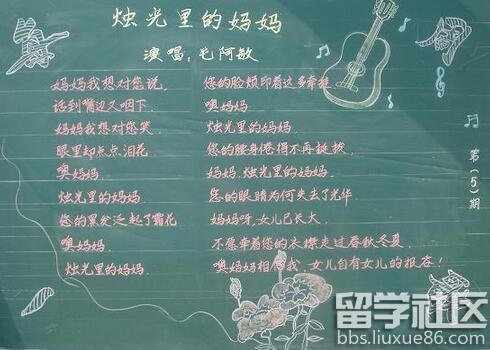 烛光里的妈妈
演唱：毛阿敏
妈妈我想对您说,
话到嘴边又咽下.
妈妈我想对您笑.
眼里却点点泪花.
噢妈妈.
烛光里的妈妈.
您的黑发泛起了霜花
噢妈妈.
烛光里的妈妈.
您的脸颊印着这多牵挂
噢妈妈.
烛光里的妈妈.
您的腰身倦得不再挺拔.
妈妈,烛光里的妈妈.
您的眼睛为何失去了光华
妈妈呀,女儿已长大.
不愿牵着您的衣襟走过春秋冬夏.
噢妈妈相信我,女儿自有女儿的报答！
第(5)期
留学社区
bbs.liuxue86.com